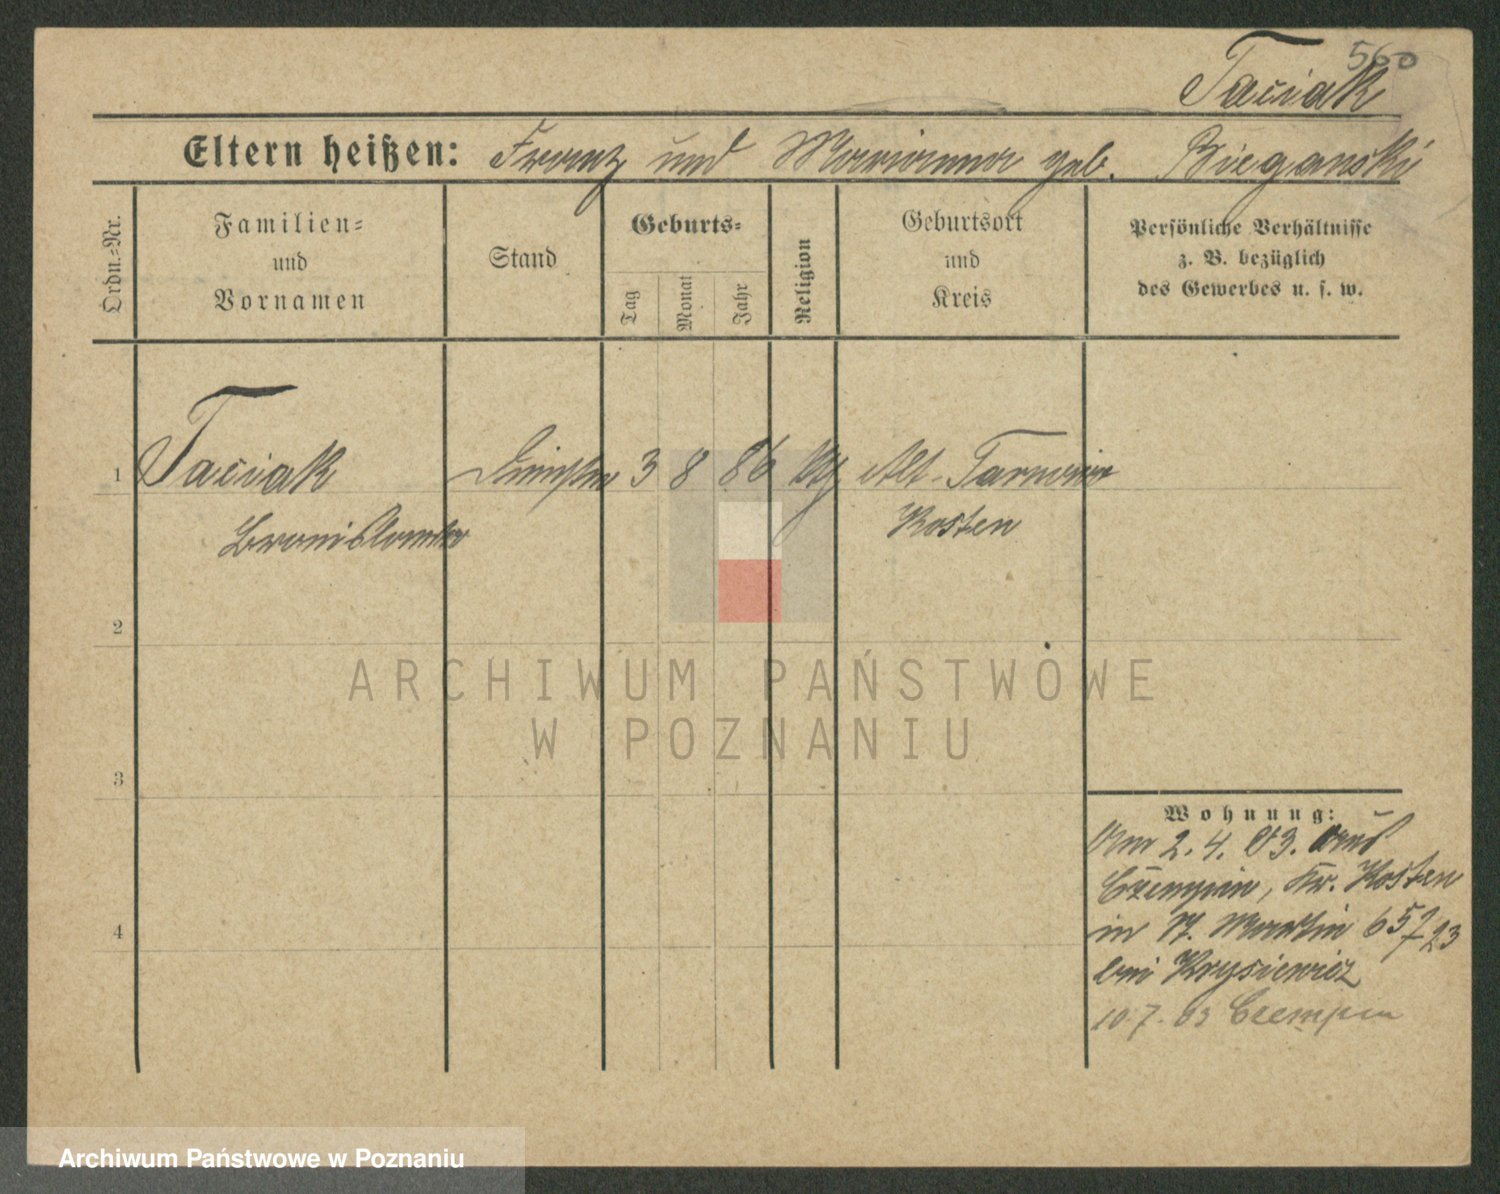 560
Taciak
Eltern heißen: Franz und Marianna geb. Bieganski
Ordn.=Nr.
Familien=
und
Vornamen
Stand
Geburts=
Tag
Monat
Jahr
Religion
Geburtsort
und
Kreis
Persönliche Verhältnisse
z. B. bezüglich
des Gewerbes u. s. w.
1 Taciak 3 8 86 Alt-Tarnowo
Bronislawa Kosten
2
3
4
ARCHIWUM PAŃSTWOWE
W POZNANIU
Wohnung:
Am 2. 4. 03. aus
Czempin, Kr. Kosten
in St. Martin 65/23
bei Krysiewicz
10.7.03 Czempin
Archiwum Państwowe w Poznaniu